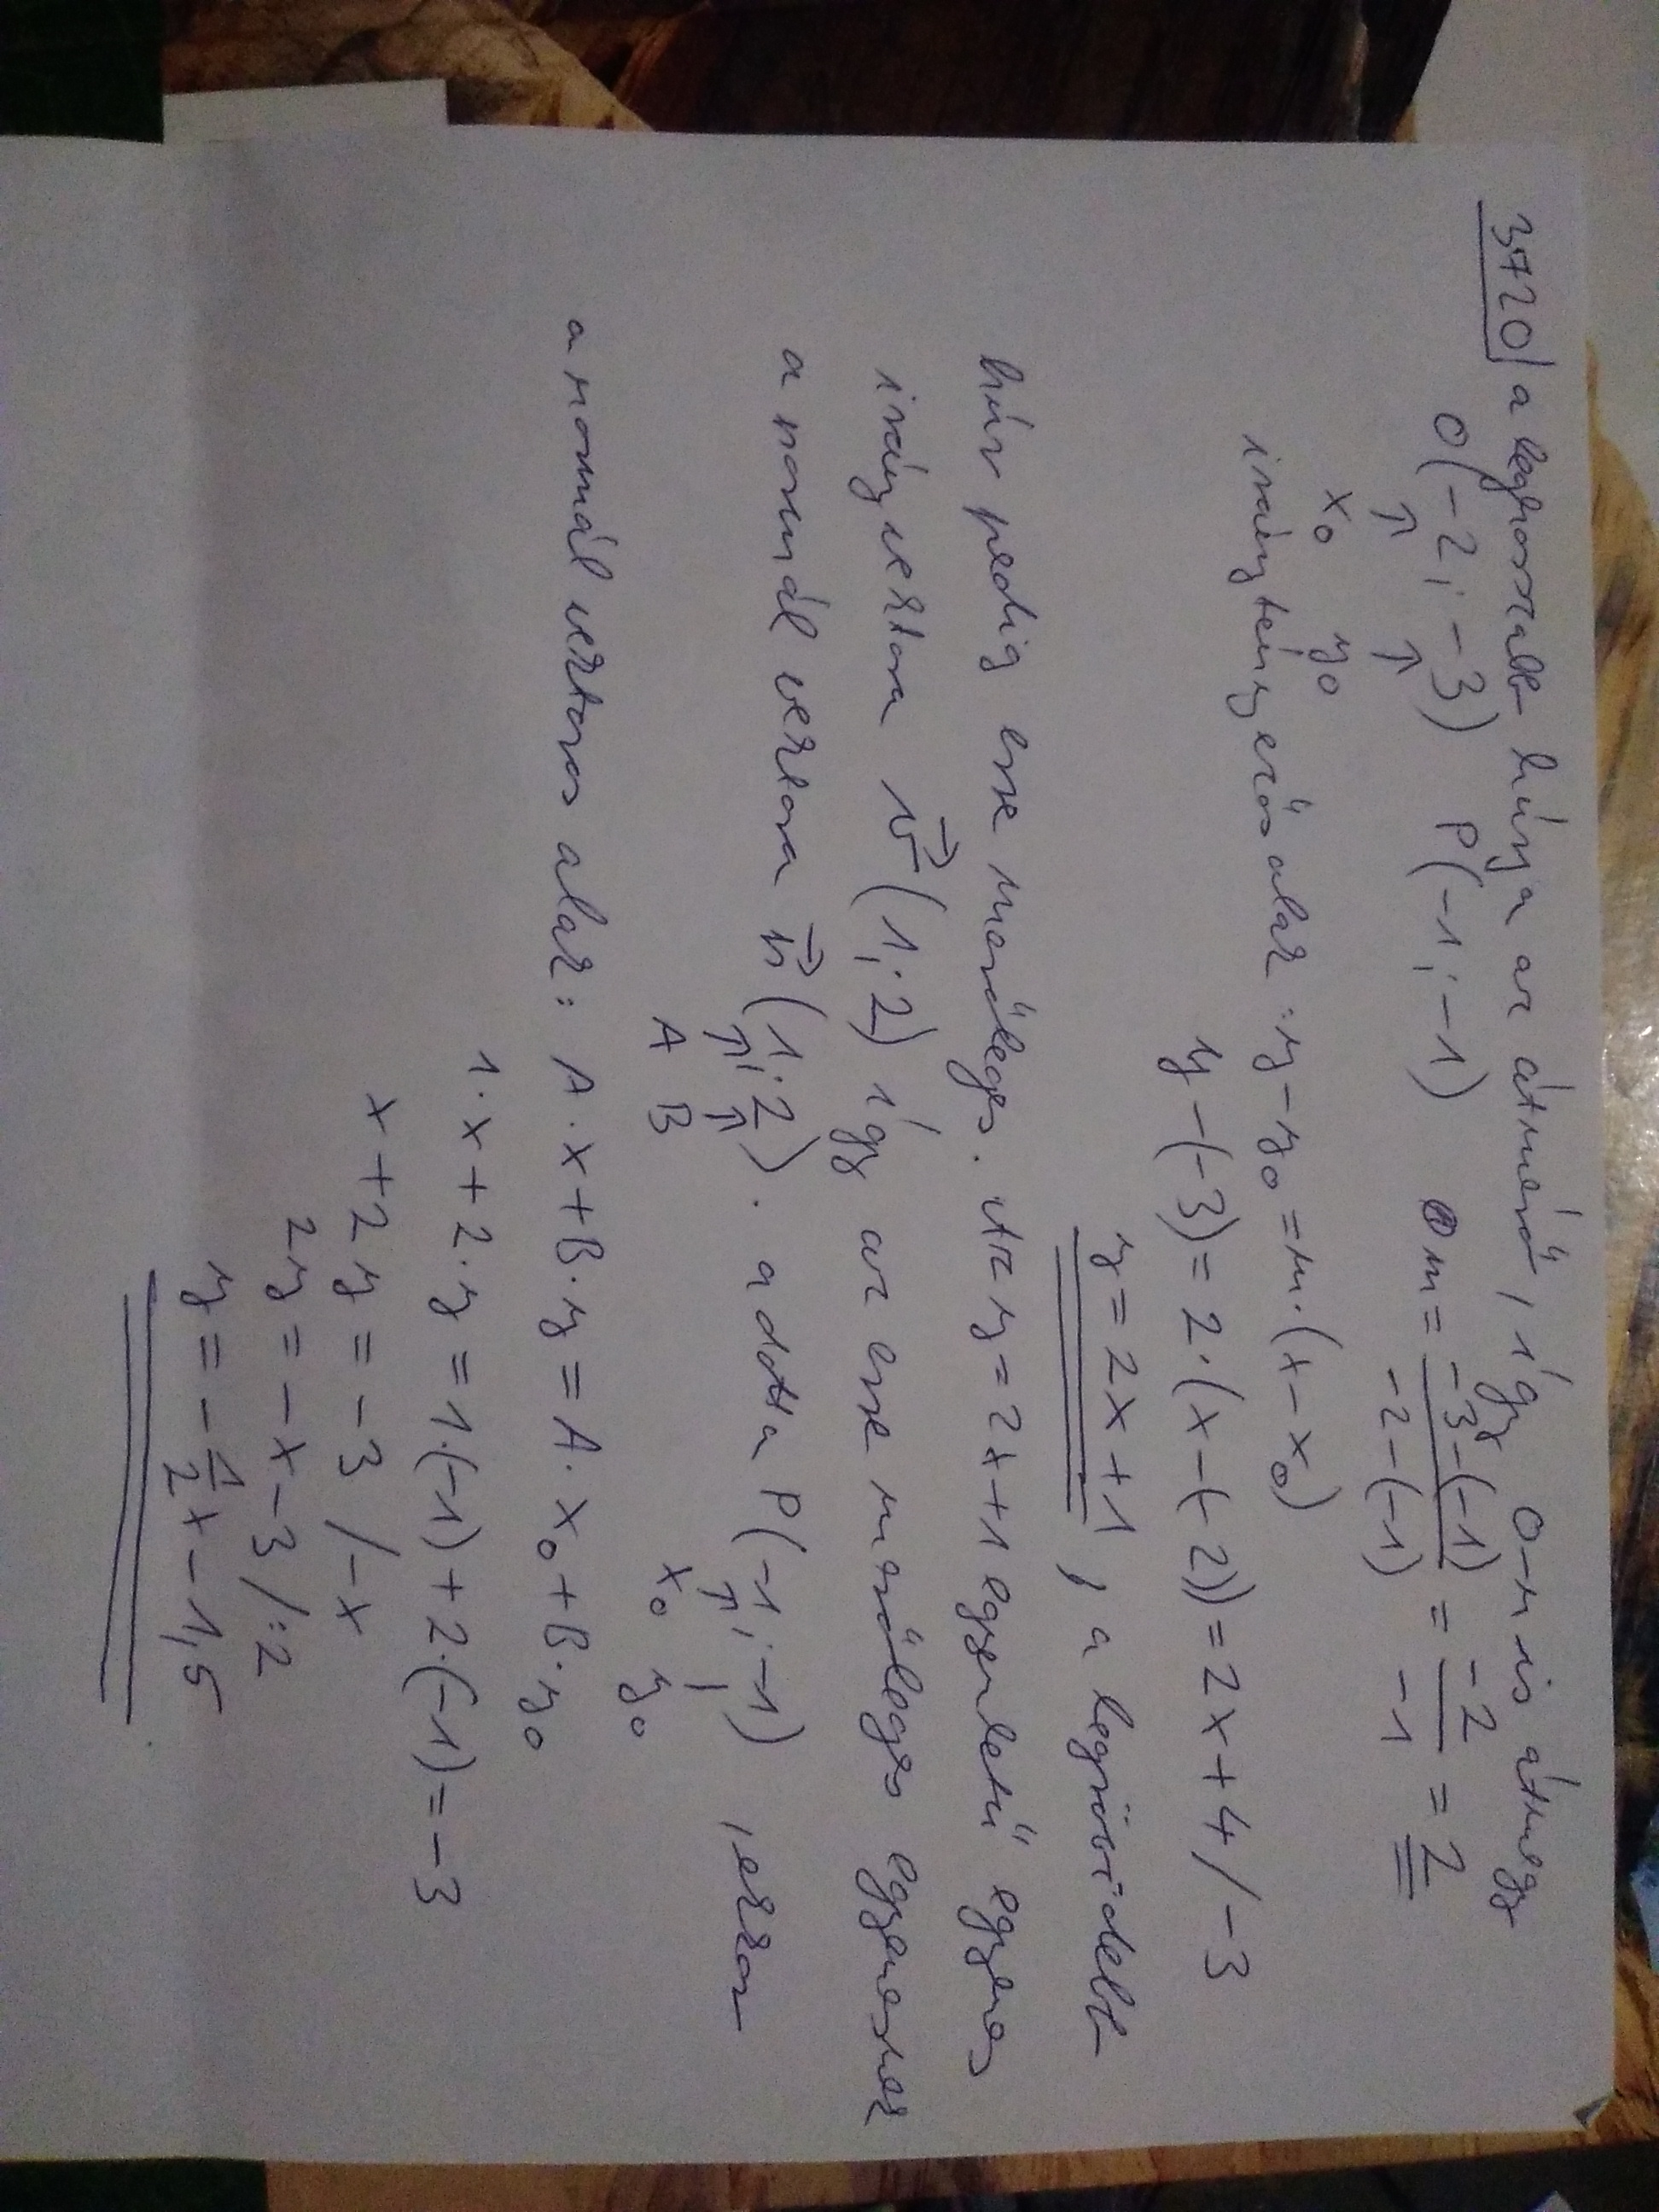 3720 a leghosszabb húrja az átmérő, így O-n is átmegy
O(-2; -3) P(-1; -1) m = -3-(-1) / -2-(-1) = -2 / -1 = 2
↑ ↑
x₀ y₀
iránytényezős alak: y-y₀=m·(x-x₀)
y-(-3)=2·(x-(-2))=2x+4/-3
y=2x+1, a legrövidebb
húr pedig erre merőleges. Az y=2x+1 egyenletű egyenes
irányvektora v⃗(1; 2) így az erre merőleges egyenesnek
a normálvektora n⃗(1; 2). adott a P(-1; -1), ekkor
↑ ↑ ↑ |
A B x₀ y₀
a normálvektoros alak: A·x+B·y=A·x₀+B·y₀
1·x+2·y=1·(-1)+2·(-1)=-3
x+2y=-3/-x
2y=-x-3/:2
y=-1/2 x-1,5